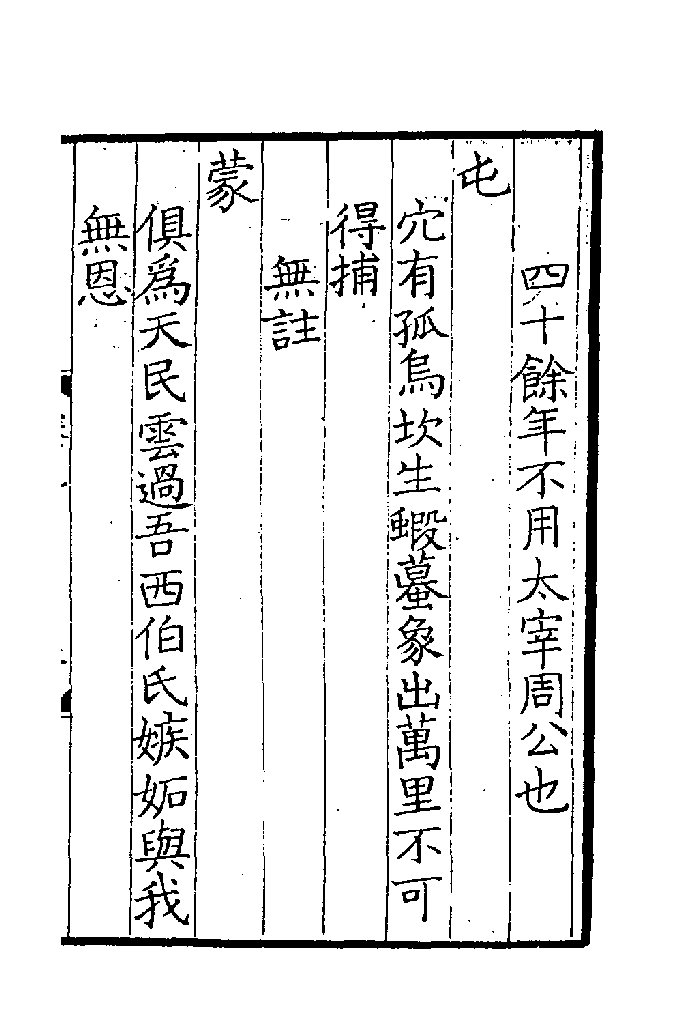 四十餘年不用太宰周公也
屯
穴有孤烏坎生蝦蟇象出萬里不可
得捕
無註
蒙
俱爲天民雲過吾西伯氏嫉妬與我
無恩